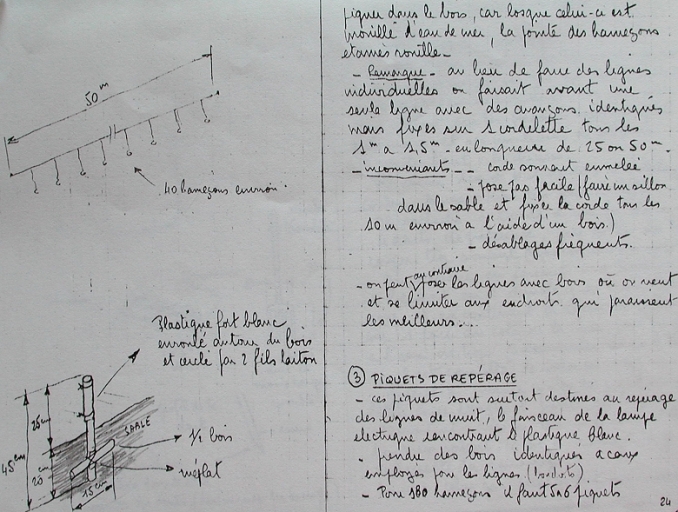 50 m
40 hameçons environ
Plastique fort blanc
enroulé autour du bois
et cerclé par 2 fils laiton
25 cm
45 cm
20 cm
15 cm
SABLE
1/2 bois
méplat
piquer dans le bois, car losque celui-ci est
mouillé d'eau de mer, la pointe des hameçons
etamés rouille.
- Remarque - au lieu de faire des lignes
individuelles on faisait avant une
seule ligne avec des avançons identiques
mais fixés sur 1 cordelette tous les
1m a 1,5m - en longueur de 25 ou 50m.
- inconvenients - - corde souvent emmelée
- pose pas facile (faire un sillon
dans le sable et fixer la corde tous les
10 m environ a l'aide d'un bois.)
- désablages fréquents.
- on peut au contraire poser les lignes avec bois où on veut
et se limiter aux endroits qui paraissent
les meilleurs...
③ PIQUETS DE REPÉRAGE
- ces piquets sont surtout destinés au repérage
des lignes de nuit, le faisceau de la lampe
electrique rencontrant le plastique blanc.
- prendre des bois identiques a ceux
employés pour les lignes
- Pour 180 hameçons il faut 5 a 6 piquets
24